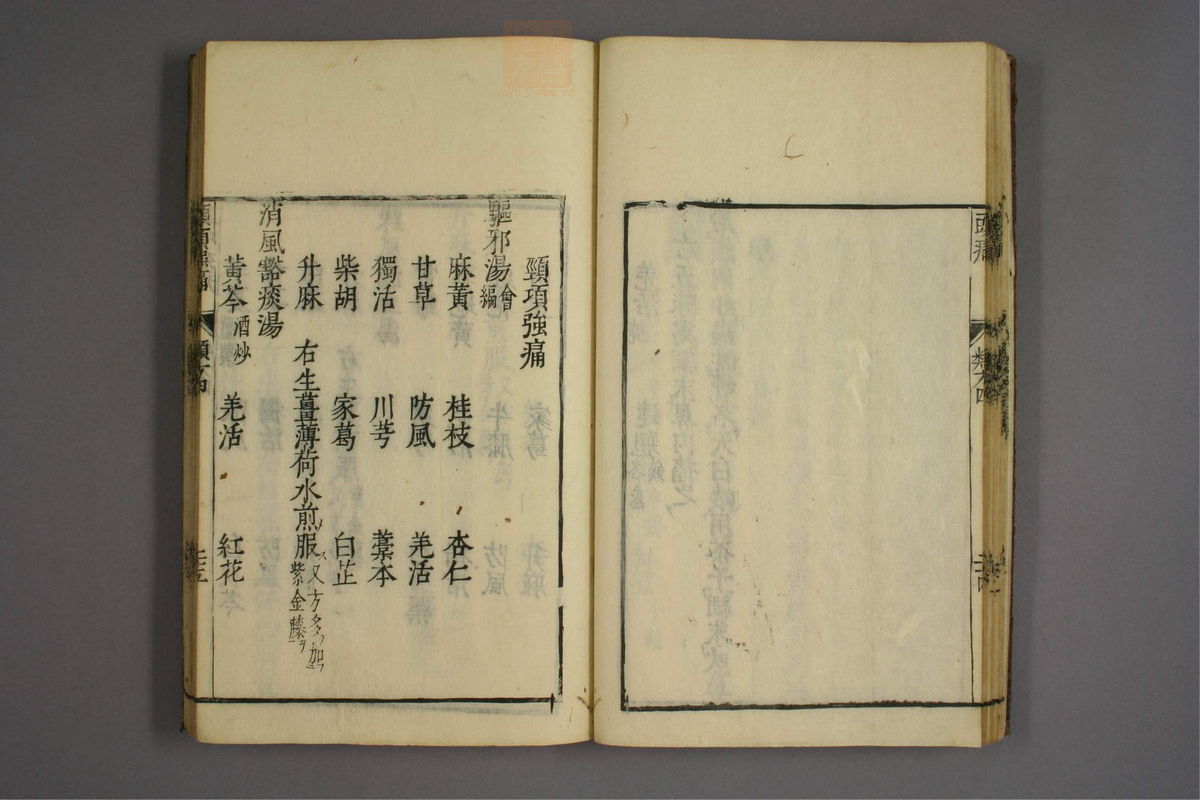 頭痛
類方四
頸項強痛
驅邪湯 會編
麻黃 桂枝 杏仁
甘草 防風 羌活
獨活 川芎 藁本
柴胡 家葛 白芷
升麻 右生薑薄荷水煎服 又方多ク加フ紫金藤ヲ
消風豁痰湯
黃芩 酒炒 羌活 紅花